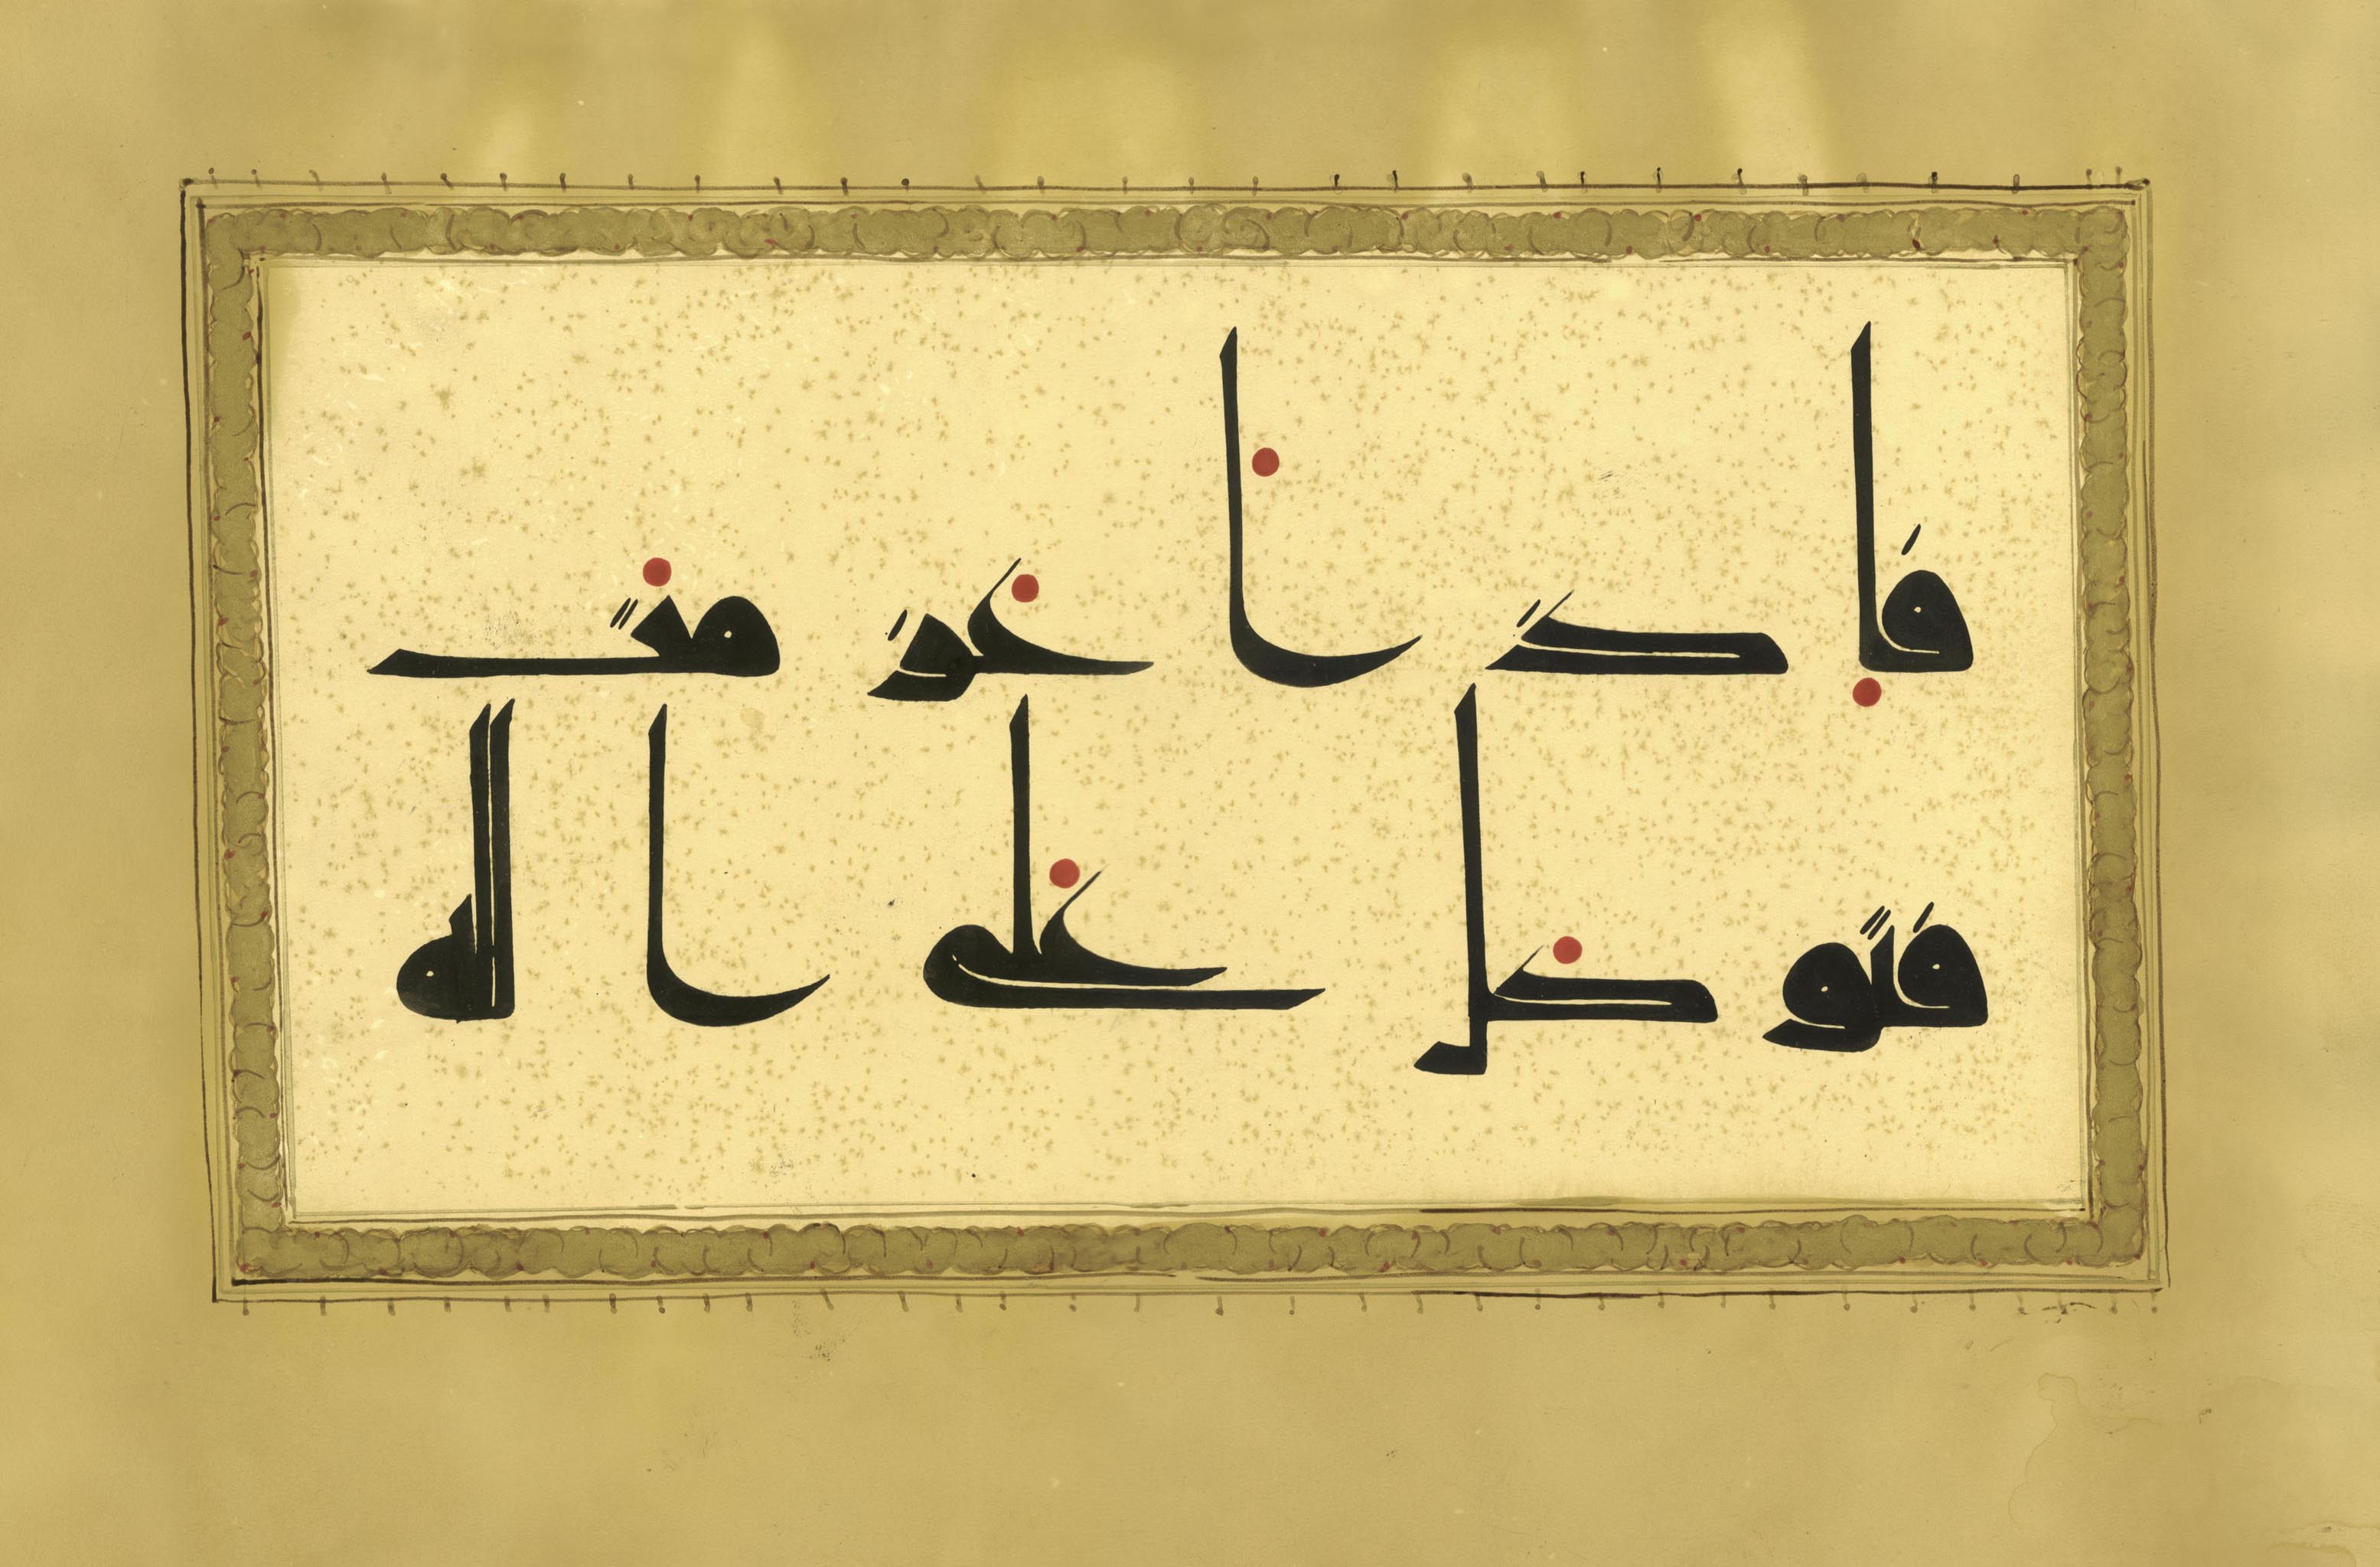 فإذا عزمت
فتوكل على الله